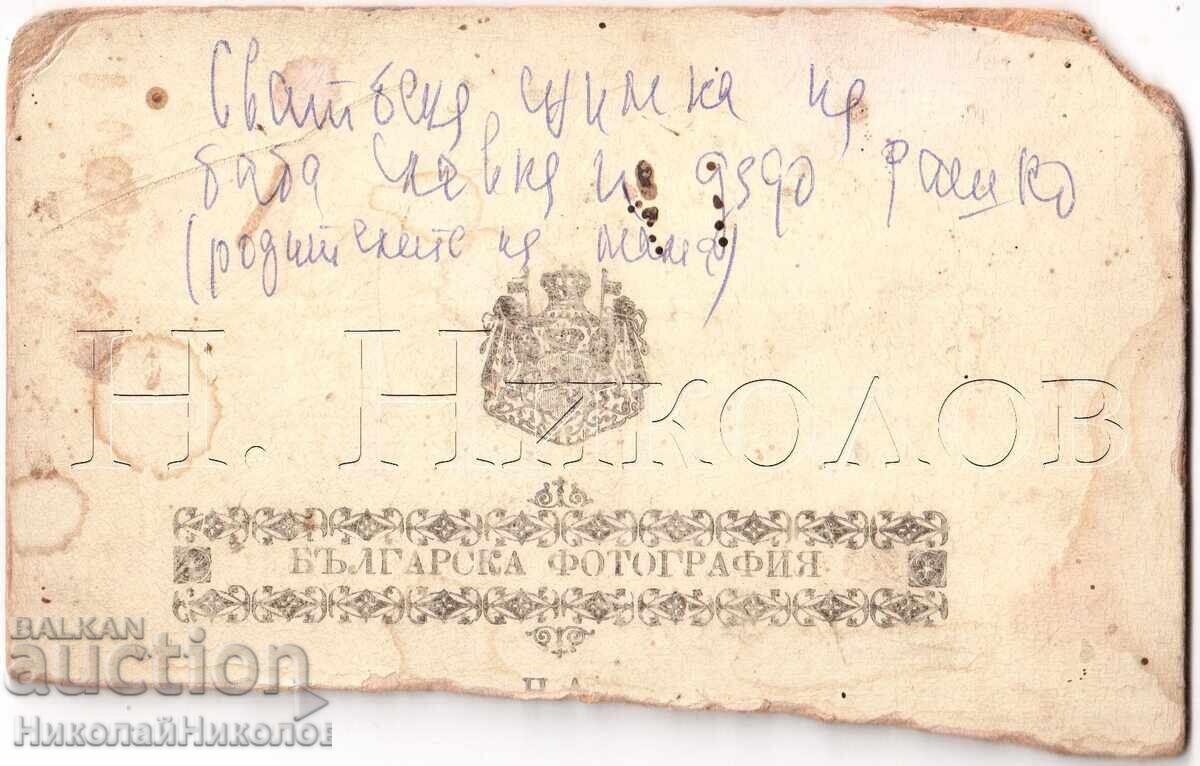 Сватбена снимка на
баба Славка и дядо Рашко
(родителите на мама)
Н. Николов
БЪЛГАРСКА ФОТОГРАФИЯ
НА
BALKAN
auction
НиколайНиколов